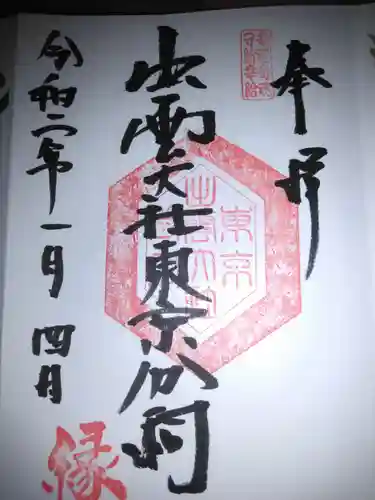 奉拝
出雲大社東京分祠
東京
出雲大社
令和二年一月四日
縁